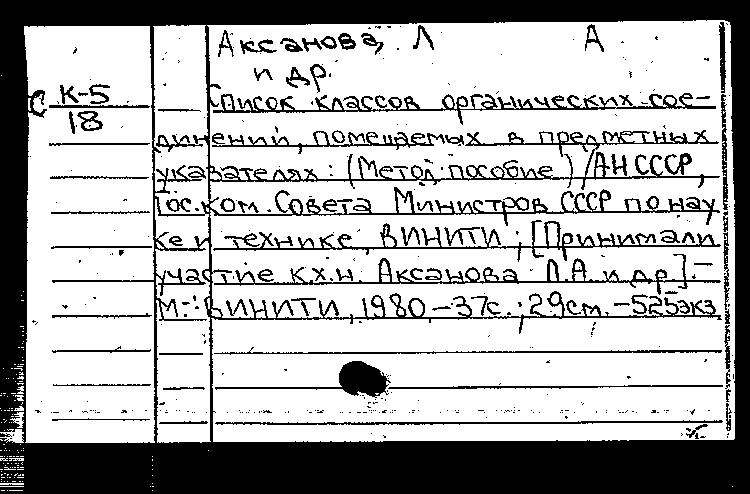 Аксанова, Л А
и др.
С К-5 Список классов органических сое-
18
динений, помещаемых в предметных
указателях: (Метод. пособие) / АН СССР,
Гос. ком. Совета Министров СССР по нау
ке и технике, ВИНИТИ; [Принимали
участие к.х.н. Аксанова Л.А. и др]. -
М.: ВИНИТИ, 1980. - 37с.; 29см. - 525экз